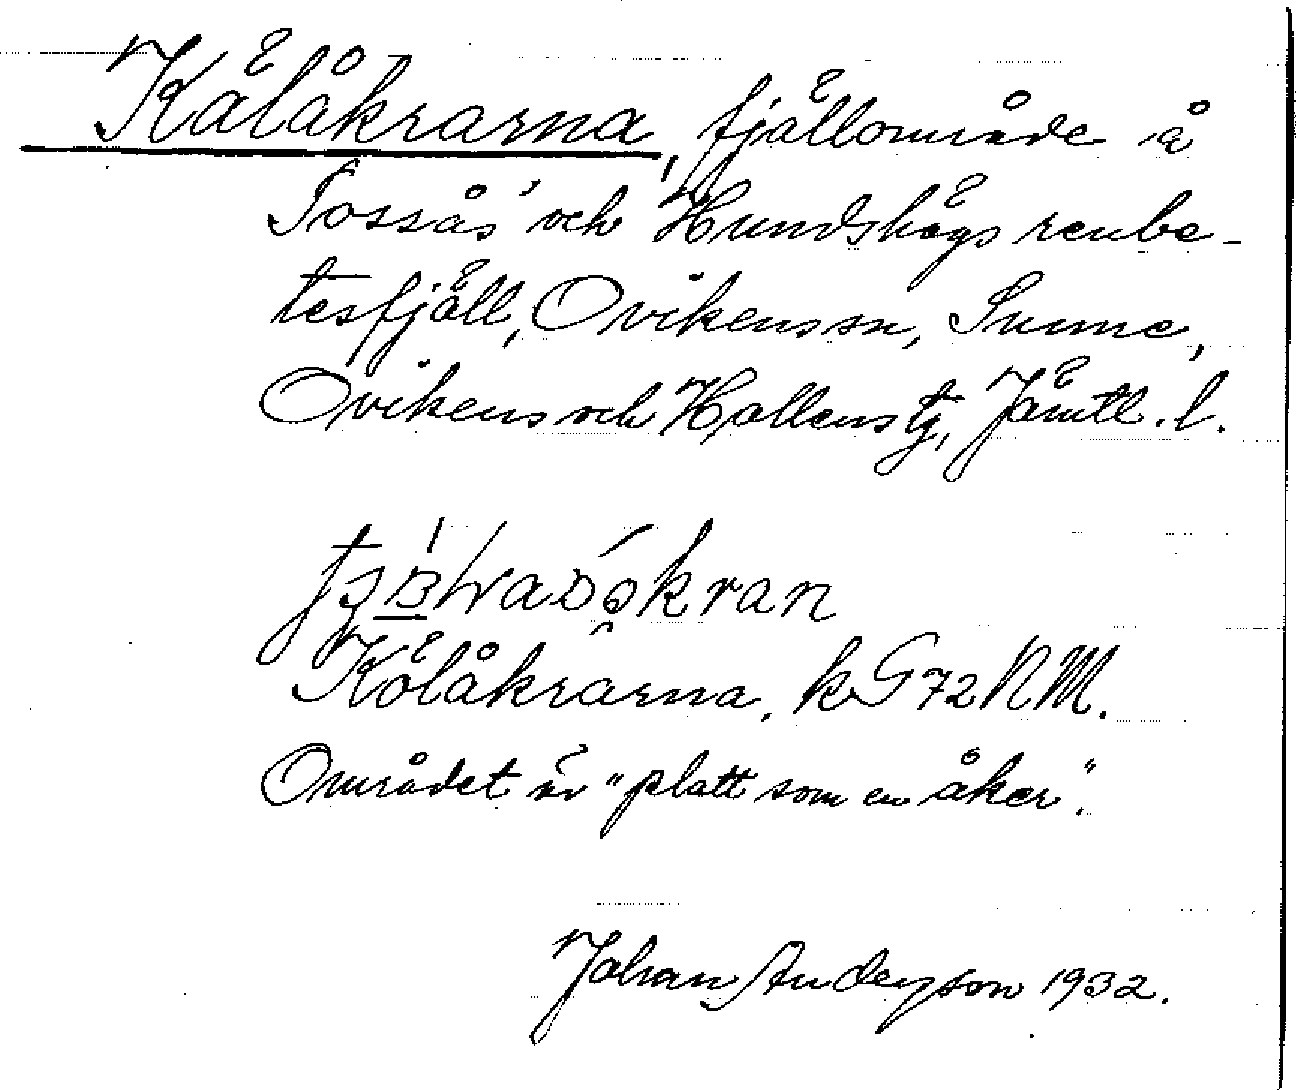 Kålåkrarna, fjällområde å
Tossås' och Hundshögs renbe-
tesfjäll, Ovikens sn, Sunne,
Ovikens och Hallens tg, Jämtl. l.
Kölåkrarna. k G 72 NM.
Området är "platt som en åker".
Johan Anderson 1932.